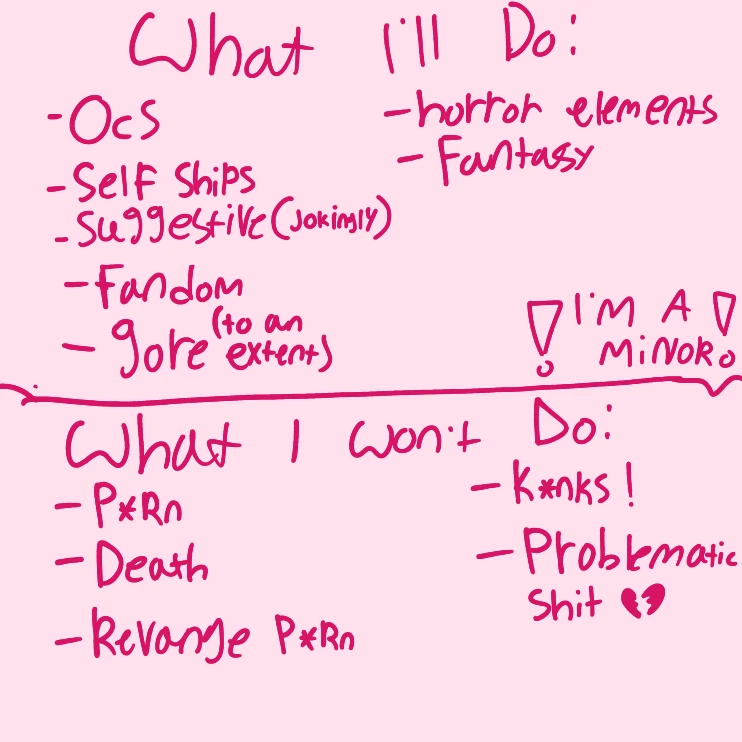 What I'll Do:
- Ocs
- Self Ships
- Suggestive (Jokingly)
- Fandom
- gore (to an extent)
- horror elements
- Fantasy
! I'M A MiNOR !
What I Won't Do:
- P*Rn
- Death
- Revange P*Rn
- K*nks !
- Problematic
Shit 💔